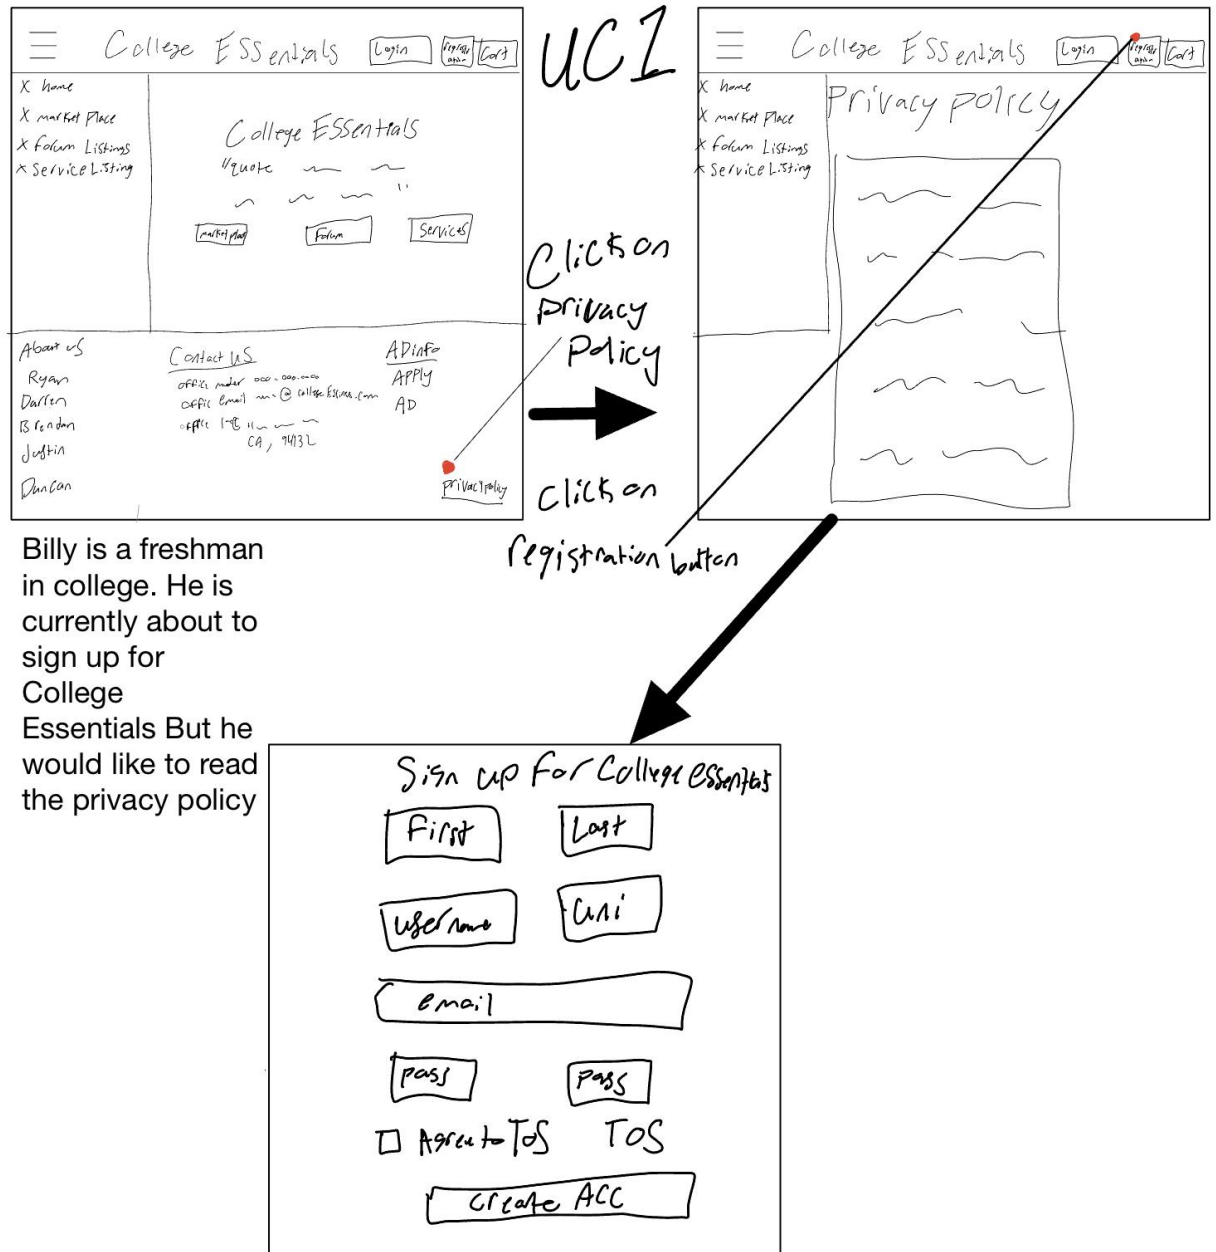 College ESSentials
Login
Registration
Cart
X home
X market Place
X Forum Listings
X Service Listing
College ESSentials
"quote
"
market place
Forum
Services
About us
Ryan
Darren
Brendan
Justin
Duncan
Contact US
office number 000-000-0000
office email
CA, 94132
AD info
APPly
AD
privacy policy
UC1
Click on
privacy
Policy
Click on
registration button
College ESSentials
Login
Registration
Cart
X home
X market Place
X Forum Listings
X Service Listing
Privacy policy
Billy is a freshman
in college. He is
currently about to
sign up for
College
Essentials But he
would like to read
the privacy policy
Sign up For College essentials
First
Last
username
uni
email
pass
pass
Agree to ToS
ToS
create ACC